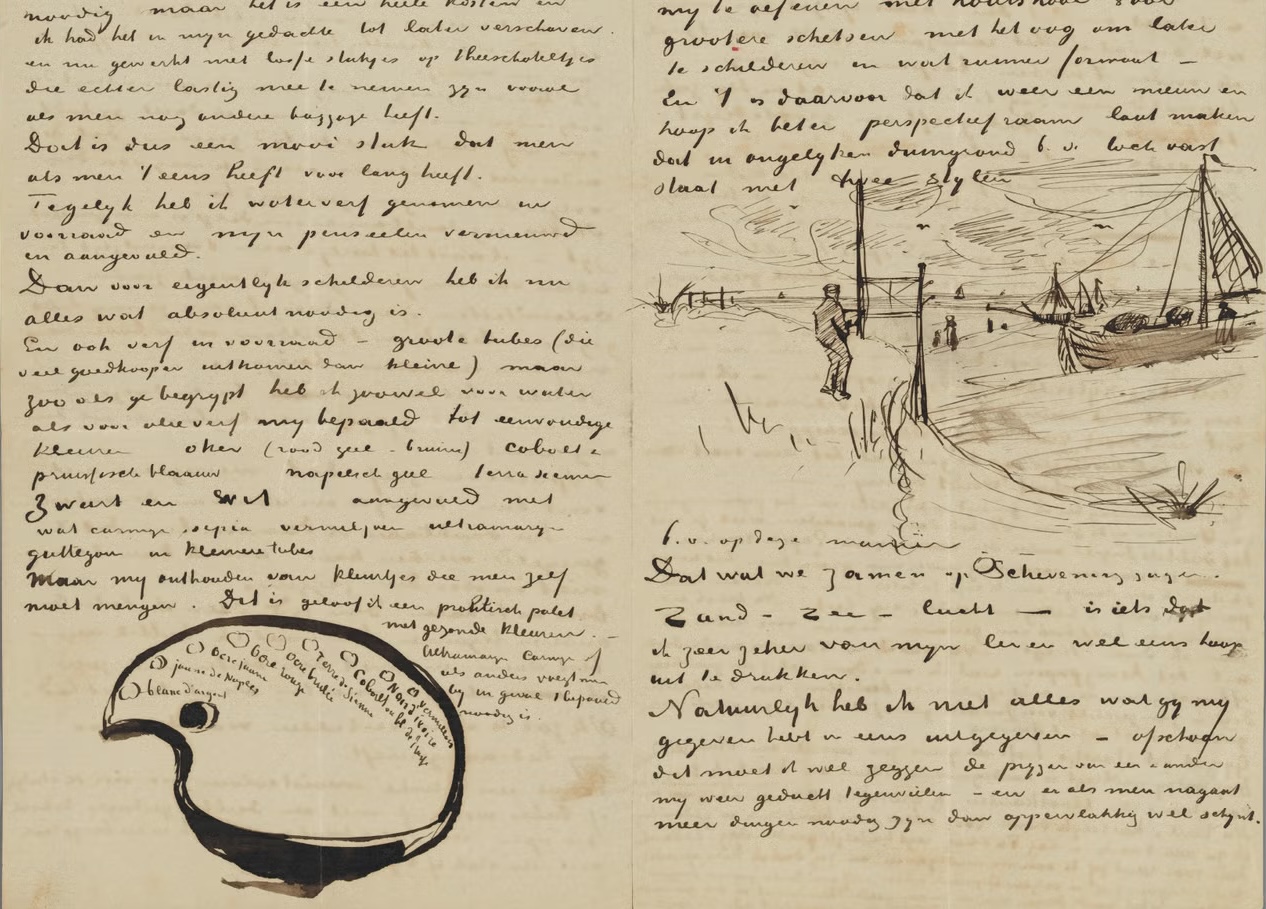 noodig maar het is een heele kosten en
ik had het in myn gedachte tot later verschoven.
en nu gewerkt met losse stukjes op theeschoteltjes
die echter lastig mee te nemen zyn vooral
als men nog andere baggage heeft.
Dat is dus een mooi stuk dat men
als men 't eens heeft voor lang heeft.
Tegelyk heb ik waterverf genomen in
voorraad en myn penseelen vernieuwd
en aangevuld.
Dan voor eigentlyk schilderen heb ik nu
alles wat absoluut noodig is.
En ook verf in voorraad – groote tubes (die
veel goedkooper uitkomen dan kleine) maar
zooals ge begrypt heb ik zoowel voor water
als voor olieverf my bepaald tot eenvoudige
kleuren oker (rood geel - bruin) cobalt &
pruissisch blaauw napelsch geel terra sienna
Zwart en Wit aangevuld met
wat carmyn sepia vermiljoen ultramaryn
guttegom in kleinere tubes
Maar my onthouden van kleurtjes die men zelf
moet mengen. Dit is geloof ik een praktisch palet
met gezonde kleuren. –
Ultramaryn Carmyn of
als anders voegt men
by in geval 't bepaald
noodig is.
blanc d'argent
jaune de Naples
ocre jaune
ocre rouge
ocre brulée
Terre de Sienne
Cobalt ou bl. de Prusse
Noir d'ivoire
vermillon
my te oefenen met houtskool voor
grootere schetsen met het oog om later
te schilderen in wat ruimer formaat –
En 't is daarvoor dat ik weer een nieuw en
hoop ik beter perspectiefraam laat maken
dat in ongelyken duingrond b.v. toch vast
staat met twee stylen
b.v. op deze manier
Dat wat we zamen op Schevening zagen.
Zand – Zee – lucht – is iets dat
ik zeer zeker van myn leven wel eens hoop
uit te drukken.
Natuurlyk heb ik niet alles wat gy my
gegeven hebt in eens uitgegeven – ofschoon
dit moet ik wel zeggen de pryzen van een & ander
my weer geducht tegenvielen – en er als men nagaat
meer dingen noodig zyn dan oppervlakkig wel schynt.